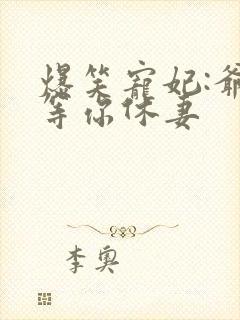 爆笑寵妃:爺
等你休妻
李奧